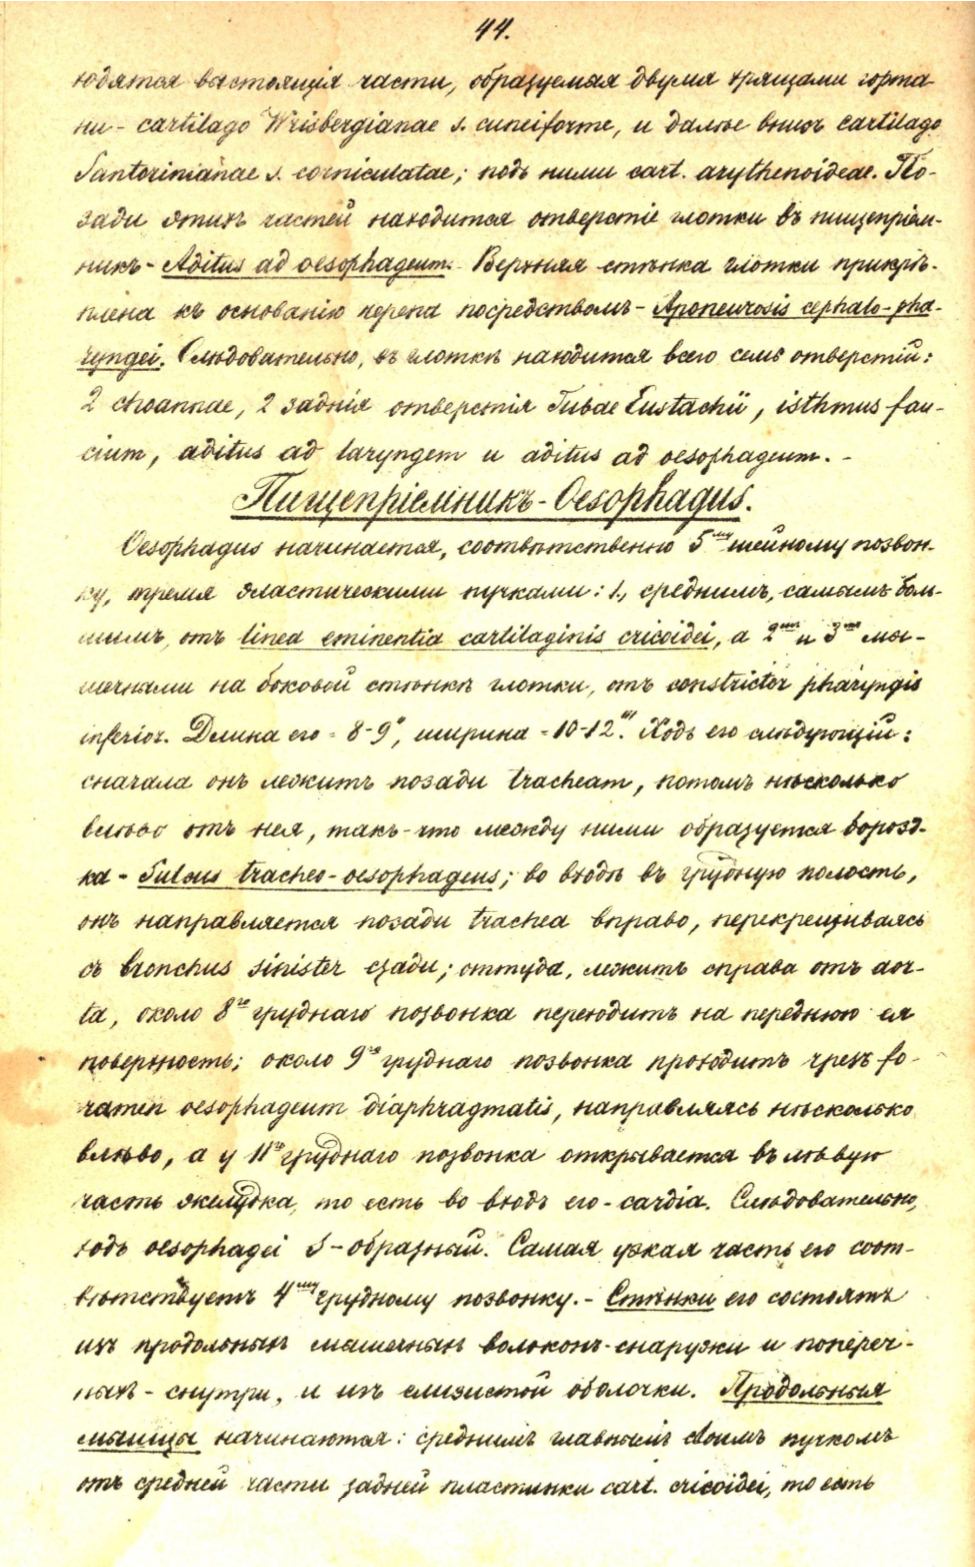 44.
ходятся выстоящія части, образуемая двумя хрящами горта-
ни - cartilago Wrisbergianae s. cuneiforme, и далѣе внизъ cartilago
Santorinianae s. corniculatae; подъ ними cart. arythenoideae. По-
зади этихъ частей находится отверстіе глотки въ пищепріем-
никъ - Aditus ad oesophageum. Верхняя стѣнка глотки прикрѣ-
плена къ основанію черепа посредствомъ - Aponeurosis cephalo-pha-
ryngei. Слѣдовательно, въ глоткѣ находится всего семь отверстій:
2 choannae, 2 заднія отверстія Tubae Eustachii, isthmus fau-
cium, aditus ad laryngem и aditus ad oesophageum. -
Пищепріемникъ - Oesophagus.
Oesophagus начинается, соотвѣтственно 5му шейному позвон-
ку, тремя эластическими пучками: 1, среднимъ, самымъ боль-
шимъ, отъ linea eminentia cartilaginis cricoidei, а 2мя и 3мя мы-
шечными на боковой стѣнкѣ глотки, отъ constrictor pharyngis
inferior. Длина его = 8-9", ширина = 10-12'''. Ходъ его слѣдующій:
сначала онъ лежитъ позади tracheam, потомъ нѣсколько
влѣво отъ нея, такъ-что между ними образуется борозд-
ка - Sulcus tracheo-oesophageus; во входѣ въ грудную полость,
онъ направляется позади trachea вправо, перекрещиваясь
съ bronchus sinister сзади; оттуда, лежитъ справа отъ aor-
ta, около 8го груднаго позвонка переходитъ на переднюю ея
поверхность; около 9го груднаго позвонка проходитъ чрезъ fo-
ramen oesophageum diaphragmatis, направляясь нѣсколько
влѣво, а у 11го груднаго позвонка открывается въ лѣвую
часть желудка, то есть во входъ его - cardia. Слѣдовательно,
ходъ oesophagei S-образный. Самая узкая часть его соот-
вѣтствуетъ 4му грудному позвонку. - Стѣнки его состоятъ
изъ продольныхъ мышечныхъ волоконъ - снаружи и попереч-
ныхъ - снутри, и изъ слизистой оболочки. Продольныя
мышцы начинаются: среднимъ главнымъ своимъ пучкомъ
отъ средней части задней пластинки cart. cricoidei, то есть